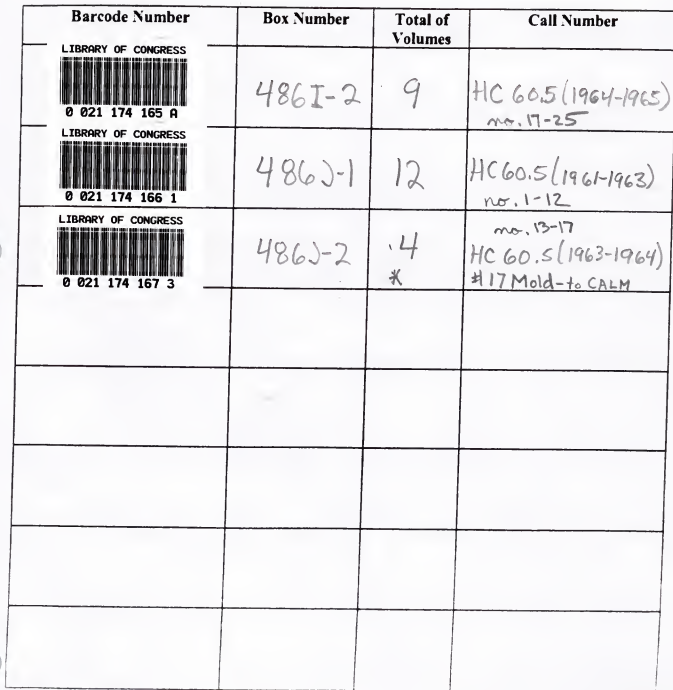 Barcode Number Box Number Total of Volumes Call Number
LIBRARY OF CONGRESS
0 021 174 165 A
486I-2 9 HC 60.5 (1964-1965)
no. 17-25
LIBRARY OF CONGRESS
0 021 174 166 1
486J-1 12 HC 60.5 (1961-1963)
no. 1-12
LIBRARY OF CONGRESS
0 021 174 167 3
no. 13-17
486J-2 .4 HC 60.5 (1963-1964)
* #17 Mold-to CALM